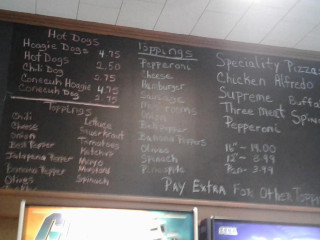 Hot Dogs
Hoagie Dogs 4.75
Hot Dogs 2.50
Chili Dog 2.75
Conecuh Hoagie 4.75
Conecuh Dog 2.75
Toppings
Chili
Cheese
Onion
Bell Pepper
Jalapena Pepper
Banana Pepper
Olives
Lettuce
Sauerkraut
Tomatoes
Ketchup
Mayo
Mustard
Spinach
Toppings
Pepperoni
Cheese
Hamburger
Sausage
Mushrooms
Onion
Bell pepper
Banana Peppers
Olives
Spinach
Pineapple
Speciality Pizzas
Chicken Alfredo
Supreme Buffa
Three Meat Spin
Pepperoni
16" - 14.00
12" - 8.99
Pan - 3.99
Pay Extra For Other Topp